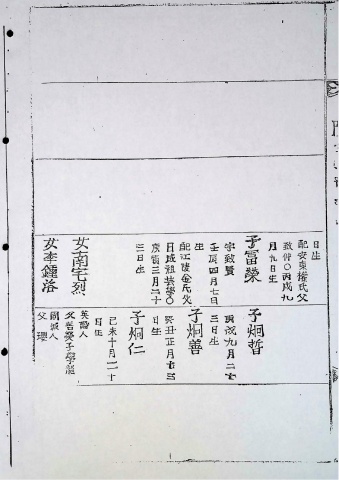 日生
配安東權氏父
致仲〇丙戌九
月九日生
子富榮
字致賢
壬辰四月七日
生
配江陵金氏父
日成祖芸學〇
庚寅三月二十
三日生
女南宅烈
女李鍾洛
子炯哲
丙戌九月二十
三日生
子炯善
癸丑正月十三
日生
子炯仁
己未十月二十
日生
英陽人
人
父璟